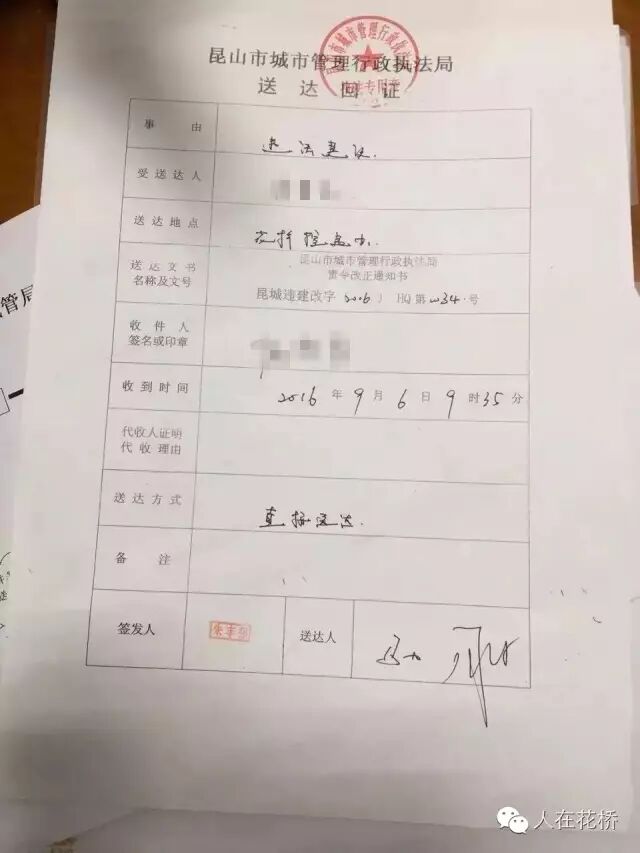 昆山市城市管理行政执法局
送达回证
事由
违法建设.
受送达人
送达地点
花桥控违办.
送达文书
名称及文号
昆山市城市管理行政执法局
责令改正通知书
昆城违建改字 2016 HQ第0034号
收件人
签名或印章
收到时间
2016年9月6日9时35分
代收人证明
代收理由
送达方式
直接送达.
备注
签发人
送达人
管局
人在花桥